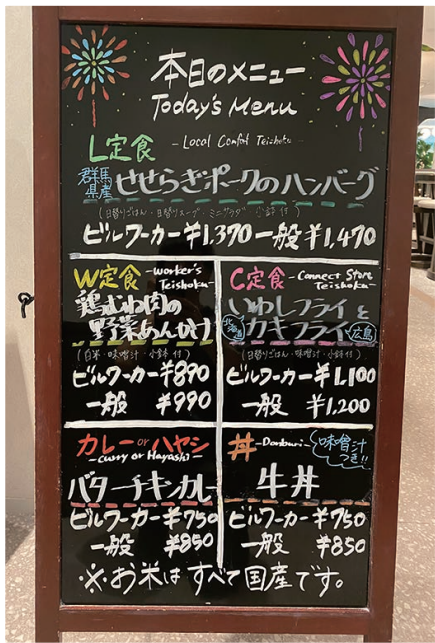 本日のメニュー
Today's Menu
L定食 -Local Comfot Teishoku-
群馬県産 せせらぎポークのハンバーグ
(日替りごはん・日替りスープ・ミニサラダ・小鉢付)
ビルワーカー¥1,370 一般¥1,470
W定食 -Worker's Teishoku-
鶏むね肉の
野菜あんかけ
(白米・味噌汁・小鉢付)
ビルワーカー¥890
一般 ¥990
C定食 -Connect Store Teishoku-
いわしフライと
北海道 カキフライ 広島
(日替りごはん・味噌汁・小鉢付)
ビルワーカー¥1,100
一般 ¥1,200
カレーorハヤシ
-Curry or Hayashi-
バターチキンカレー
ビルワーカー¥750
一般 ¥850
丼 -Donburi- 味噌汁つき!!
牛丼
ビルワーカー¥750
一般 ¥850
※お米はすべて国産です。